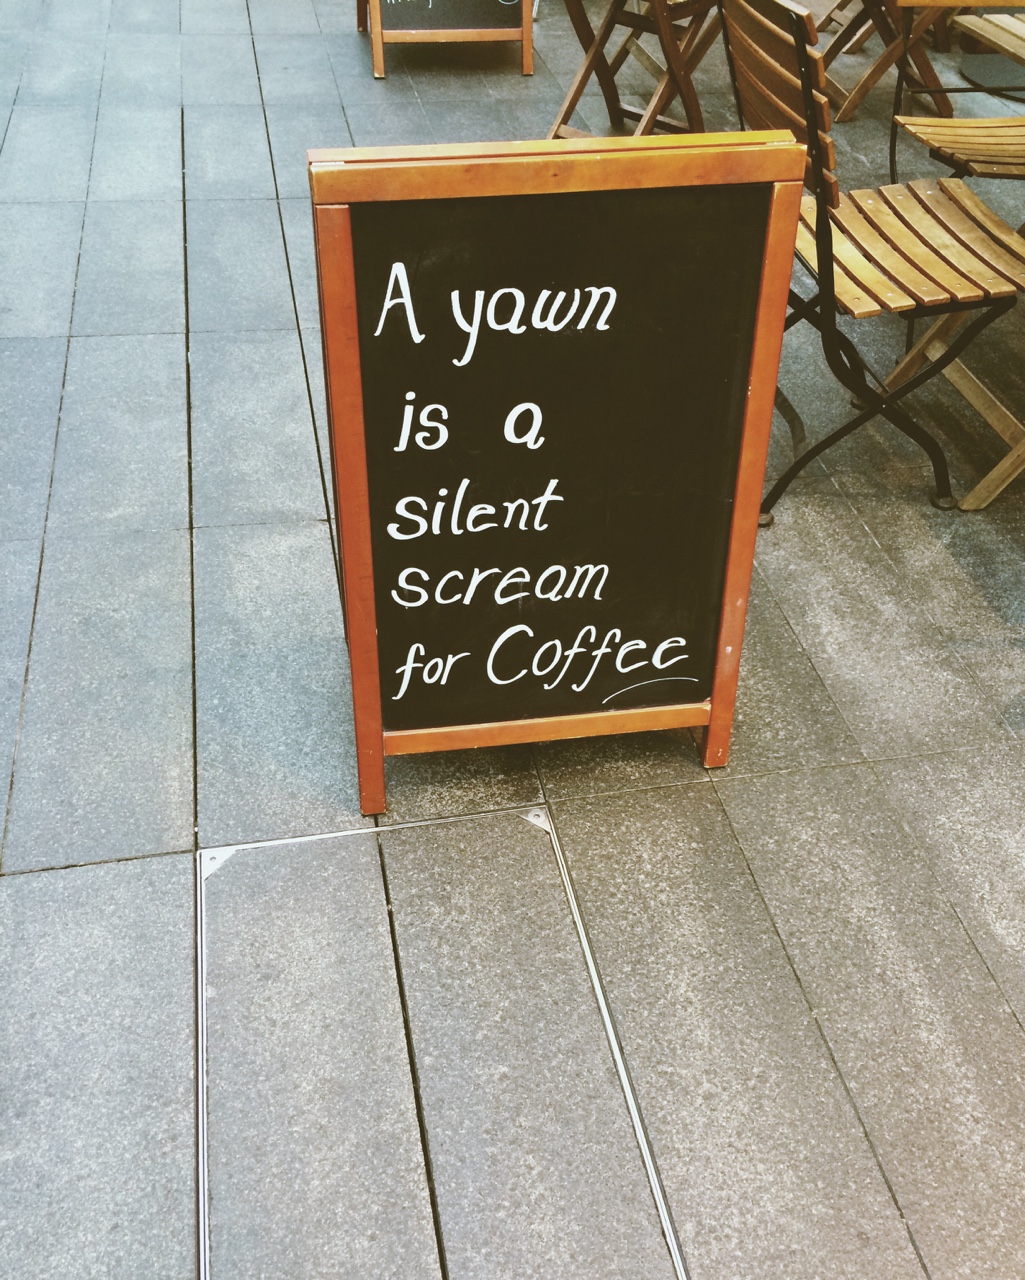 A yawn
is a
silent
scream
for Coffee